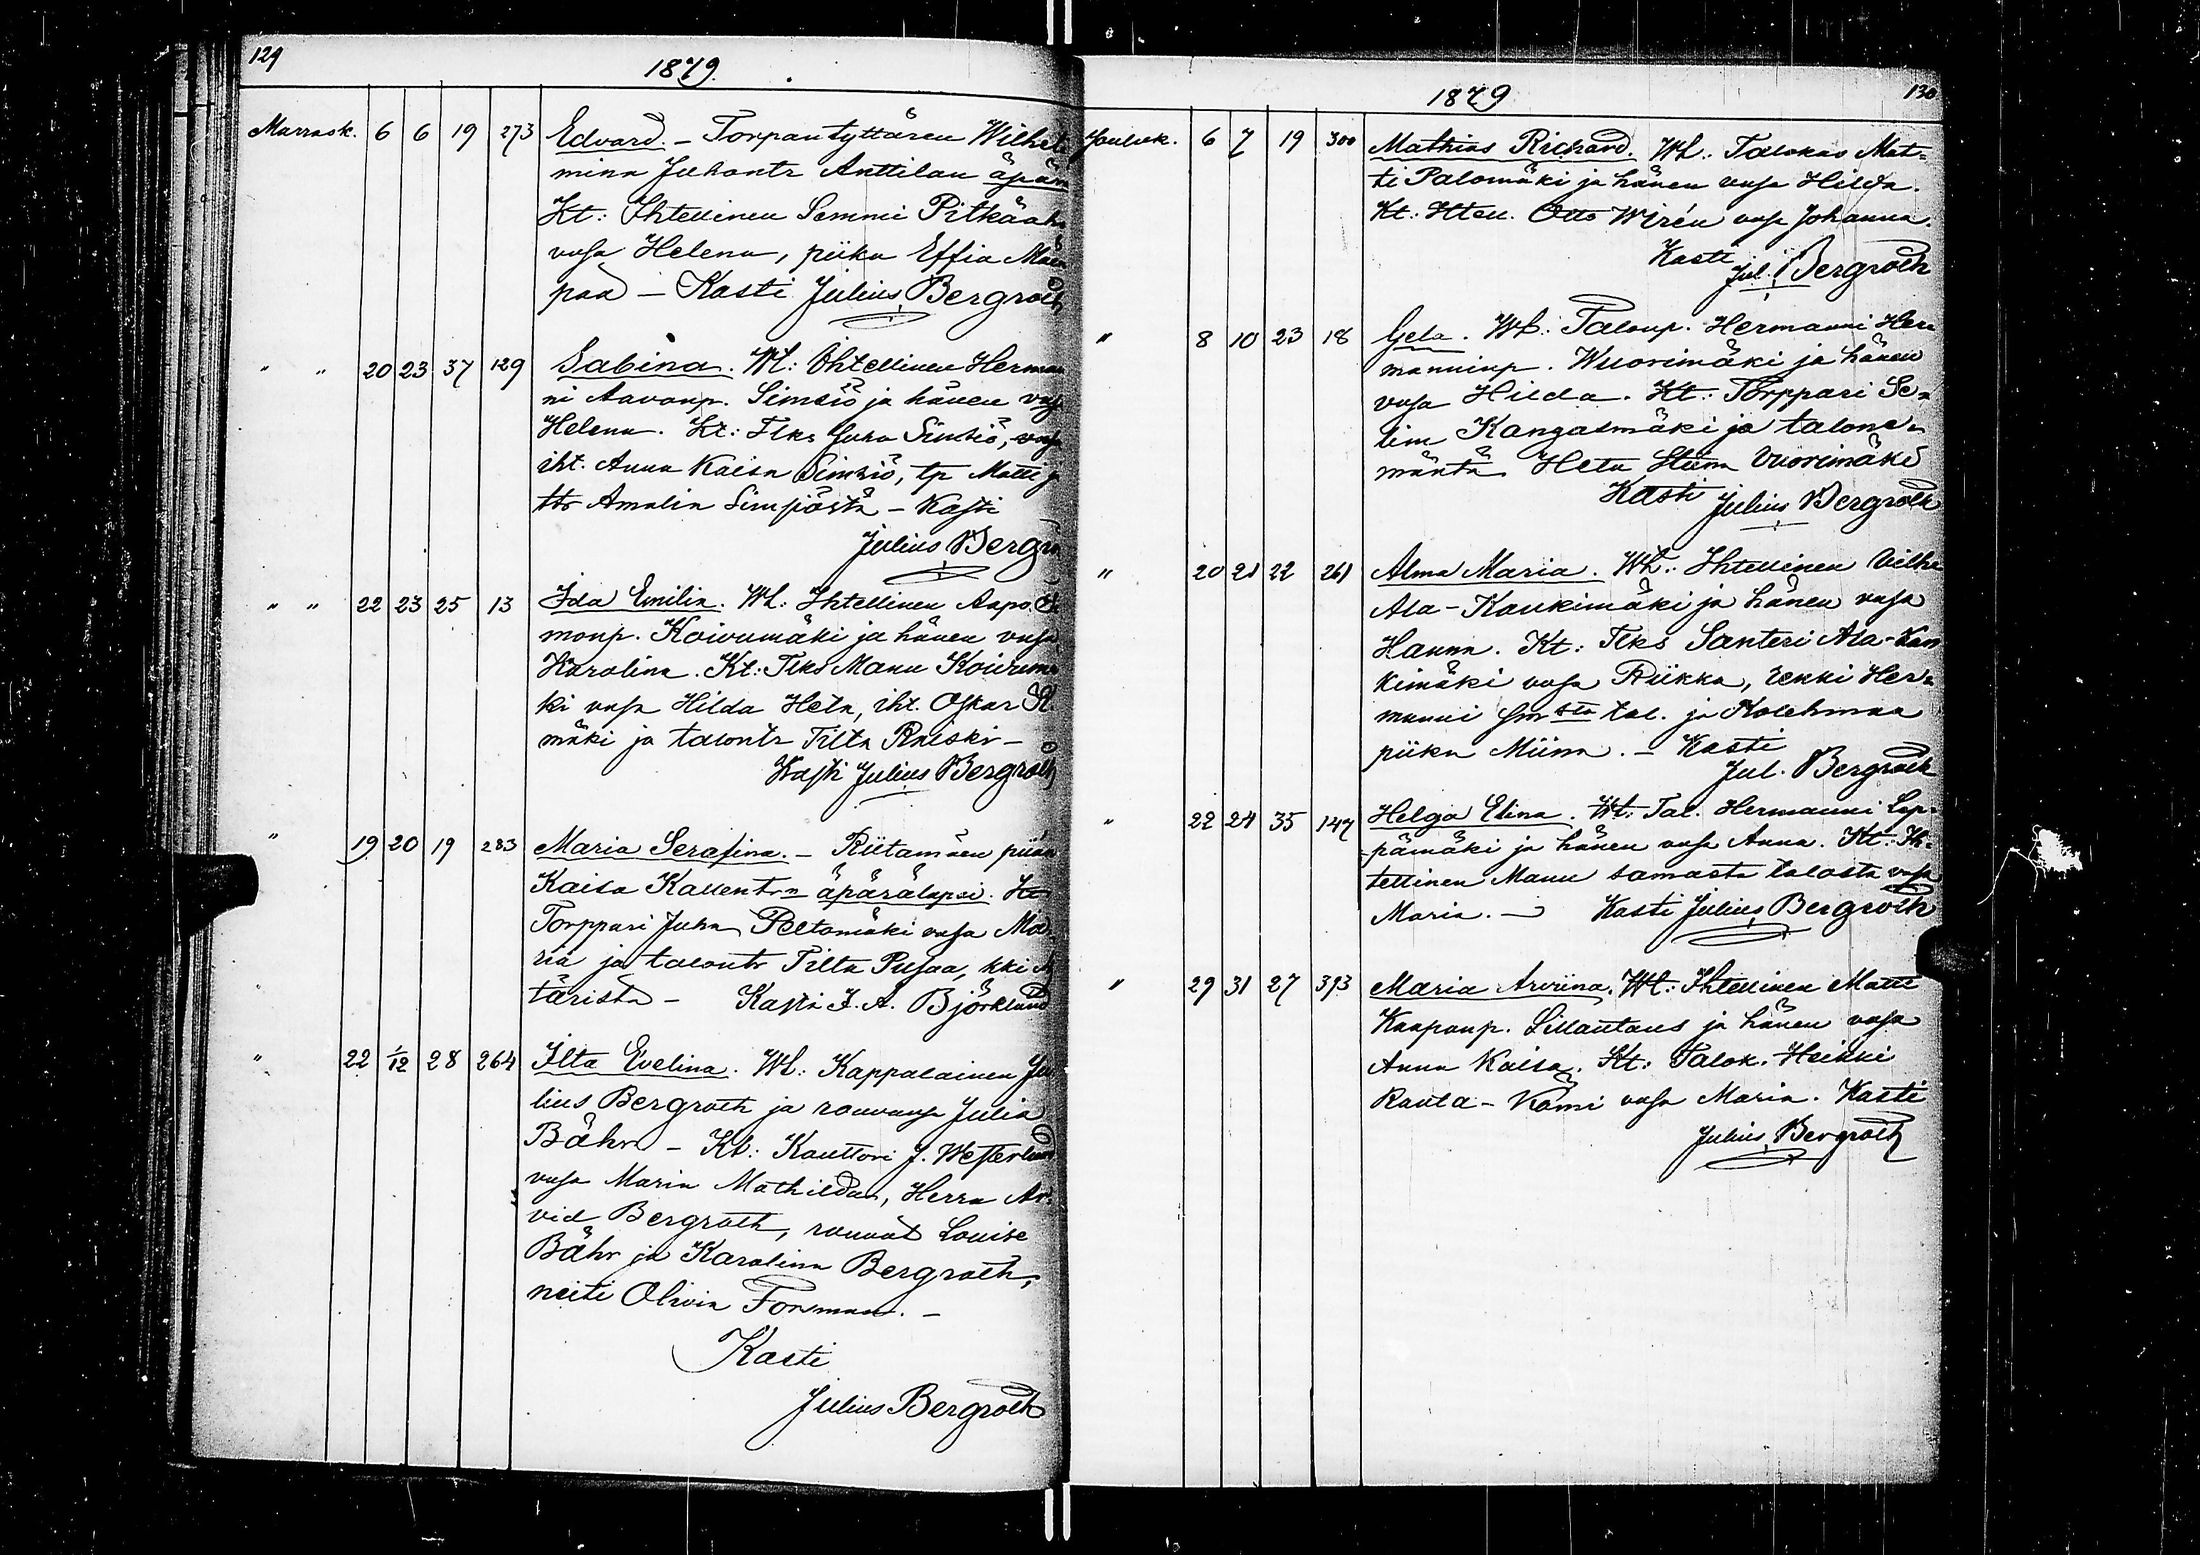 129
1879
Marrask. 6 6 19 273 Edvard. - Torpantyttären Wilhel
mina Juhontr Anttilan äpärä
Kt: Ihtellinen Semmi Pitkäah
vsa Helena, piika Effia Mäen
pää - Kasti Julius Bergroth
" " 20 23 37 129 Sabina. Wt: Ihtellinen Herman
ni Aavonp. Simsiö ja hänen vsa
Helena. Kt: Tlks Juha Simsiö, vsa
iht. Anna Kaisa Simsiö, tp Matti j
ttr Amalia Simsiöstä - Kasti
Julius Bergro
" " 22 23 25 13 Ida Emilia. Wt: Ihtellinen Aapo
monp. Koivumäki ja hänen vsa
Karolina. Kt: Tlks Manu Koivumä
ki vsa Hilda Heta, iht. Oskar
mäki ja talontr Tilta Ralski -
Kasti Julius Bergroth
" 19 20 19 283 Maria Serafina. - Riitamäen piian
Kaisa Kallentrn äpärälapsi. Kt
Torppari Juha Peltomäki vsa Ma
ria ja talontr Tilta Pusaa, kki
täristä - Kasti J. A. Björklund
" 22 1/12 28 264 Ilta Evelina. Wt: Kappalainen Ju
lius Bergroth ja rouvansa Julia
Bähr - Kt: Kanttori J. Westerlund
vsa Maria Mathildan, Herra Ar-
vid Bergroth, rouvat Louise
Bähr ja Karolina Bergroth,
neiti Olivia Forsman. -
Kasti
Julius Bergroth
1879 130
Jouluk. 6 7 19 300 Mathias Richard. Wt: Talokas Mat-
ti Palomäki ja hänen vsa Hilda.
Kt: Itell. Otto Wirén vsa Johanna.
Kasti
Jul. Bergroth
" 8 10 23 18 Geta. Wt: Talonp. Hermanni Her-
manninp. Wuorimäki ja hänen
vsa Hilda. Kt: Torppari Se-
lim Kangasmäki ja talone-
mäntä Heta Stiina Vuorimäki
Kasti Julius Bergroth
" 20 21 22 261 Alma Maria. Wt: Ihtellinen Vilhe
Ala-Kaukimäki ja hänen vsa
Hanna. Kt: Tlks Santeri Ala-Kau
kimäki vsa Riikka, renki Her-
manni smsta tal. ja Kolehmaa
piika Miina. - Kasti
Jul. Bergroth
" 22 24 35 147 Helga Elina. Wt: Tal. Hermanni Lep-
pämäki ja hänen vsa Anna. Kt: Ih-
tellinen Manu samasta talosta vsa
Maria. - Kasti Julius Bergroth
" 29 31 27 393 Maria Arviina. Wt: Ihtellinen Matti
Kaaponp. Lillantaus ja hänen vsa
Anna Kaisa. Kt: Talok. Heikki
Ranta-Kömi vsa Maria. Kasti
Julius Bergroth